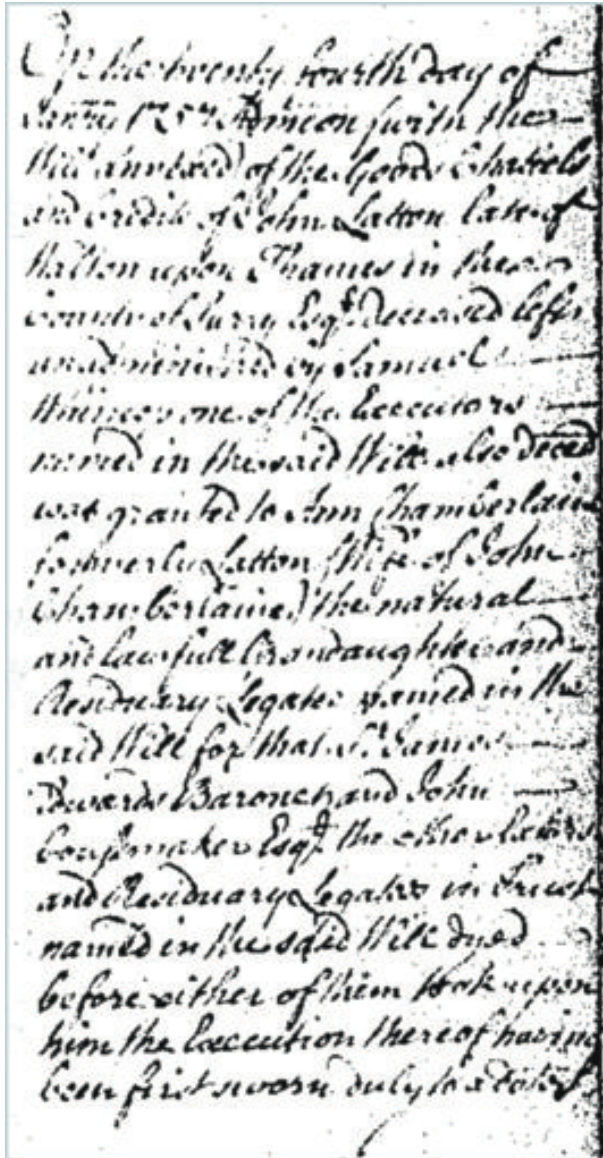 On the twenty fourth day of
Janry 1757 Admicon (with the
Will annexed) of the Goods Chattels
and Credits of John Latton late of
Walton upon Thames in the
County of Surry Esqr. deceased left
unadministred by Samuel
one of the Executors
named in the said Will also deced
was granted to Ann Chamberlaine
formerly Latton (Wife of John
Chamberlaine) the natural
and lawfull Grandaughter and
Residuary Legatee named in the
said Will for that Sr. James
Edwards Baronet and John
Coussmaker Esqr. the other Exrs.
and Residuary Legatees in Trust
named in the said Will dyed
before either of them took upon
him the Execution thereof having
been first sworn duly to